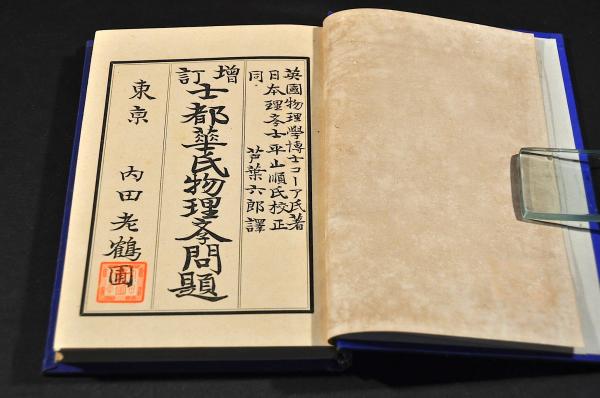 英國物理學博士コーア氏著
日本理斈士平山順氏校正
同 芦葉六郎譯
增訂
士都華氏物理斈問題
東京 内田老鶴圃